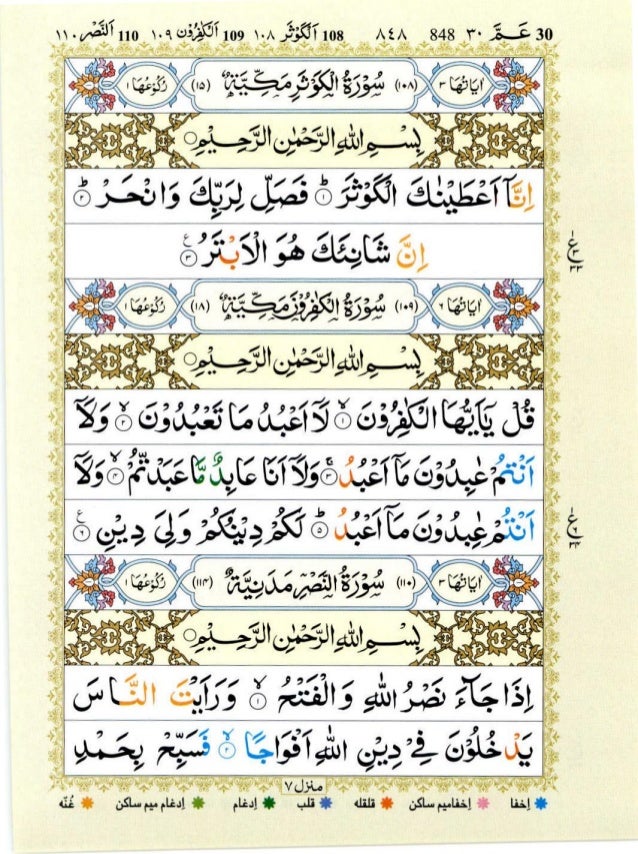 عَمَّ 30 ٣٠ 848 ٨٤٨ 108 اَلْكَوْثَر ١٠٨ 109 اَلْكٰفِرُوْن ١٠٩ 110 اَلنَّصْر ١١٠
اٰيَاتُهَا ٣ (١٠٨) سُوْرَةُ الْكَوْثَرِ مَكِّيَّةٌ (١٥) رُكُوْعُهَا ١
بِسْمِ اللّٰهِ الرَّحْمٰنِ الرَّحِيْمِ
اِنَّاۤ اَعْطَيْنٰكَ الْكَوْثَرَ ؕ ١ فَصَلِّ لِرَبِّكَ وَ انْحَرْ ؕ ٢
اِنَّ شَانِئَكَ هُوَ الْاَبْتَرُ ٣ ع
اٰيَاتُهَا ٦ (١٠٩) سُوْرَةُ الْكٰفِرُوْنَ مَكِّيَّةٌ (١٨) رُكُوْعُهَا ١
بِسْمِ اللّٰهِ الرَّحْمٰنِ الرَّحِيْمِ
قُلْ يٰۤاَيُّهَا الْكٰفِرُوْنَ ۙ ١ لَاۤ اَعْبُدُ مَا تَعْبُدُوْنَ ۙ ٢ وَلَاۤ
اَنْتُمْ عٰبِدُوْنَ مَاۤ اَعْبُدُ ۚ ٣ وَلَاۤ اَنَا عَابِدٌ مَّا عَبَدْتُّمْ ۙ ٤ وَلَاۤ
اَنْتُمْ عٰبِدُوْنَ مَاۤ اَعْبُدُ ؕ ٥ لَكُمْ دِيْنُكُمْ وَلِيَ دِيْنِ ٦ ع
اٰيَاتُهَا ٣ (١١٠) سُوْرَةُ النَّصْرِ مَدَنِيَّةٌ (١١٤) رُكُوْعُهَا ١
بِسْمِ اللّٰهِ الرَّحْمٰنِ الرَّحِيْمِ
اِذَا جَآءَ نَصْرُ اللّٰهِ وَ الْفَتْحُ ۙ ١ وَ رَاَيْتَ النَّاسَ
يَدْخُلُوْنَ فِيْ دِيْنِ اللّٰهِ اَفْوَاجًا ۙ ٢ فَسَبِّحْ بِحَمْدِ
منزل ٧
اِخفا اِخفامیم ساکن قلقله قلب اِدغام اِدغام میم ساکن غُنّه